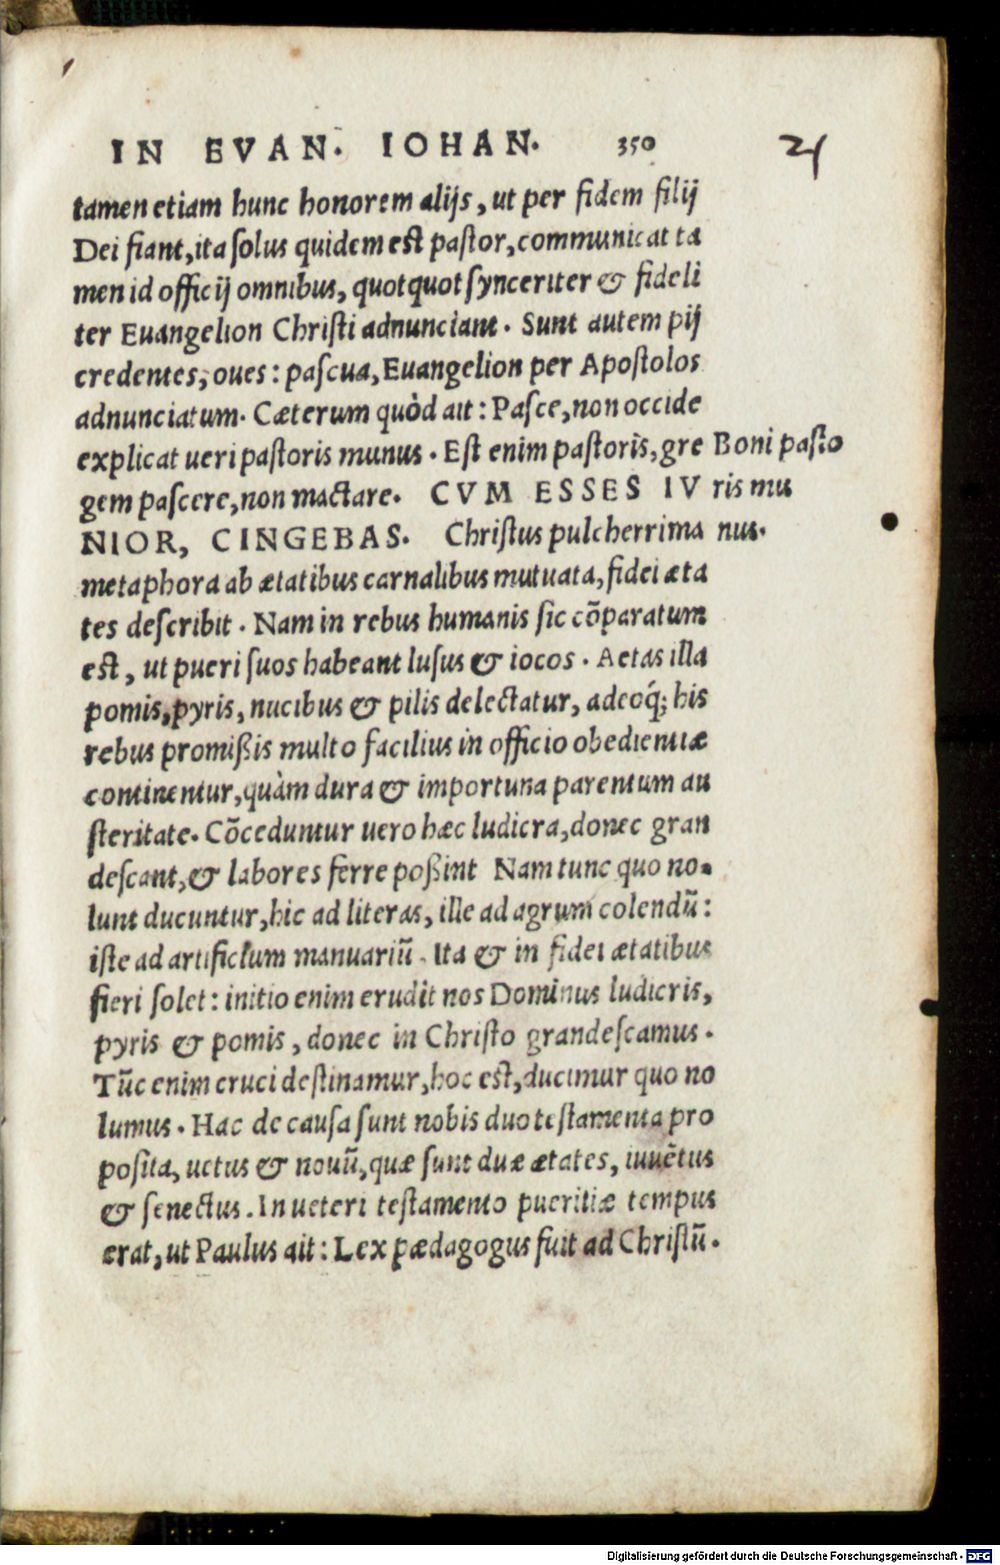 IN EVAN. IOHAN. 350 21
tamen etiam hunc honorem alijs, ut per fidem filij
Dei fiant, ita solus quidem est pastor, communicat ta
men id officij omnibus, quotquot synceriter & fideli
ter Euangelion Christi adnunciant. Sunt autem pij
credentes, oues: pascua, Euangelion per Apostolos
adnunciatum. Cæterum quòd ait: Pasce, non occide
explicat ueri pastoris munus. Est enim pastoris, gre
gem pascere, non mactare. CVM ESSES IV
NIOR, CINGEBAS. Christus pulcherrima
Boni pasto
ris mu
nus.
metaphora ab ætatibus carnalibus mutuata, fidei æta
tes describit. Nam in rebus humanis sic cõparatum
est, ut pueri suos habeant lusus & iocos. Aetas illa
pomis, pyris, nucibus & pilis delectatur, adeoq́; his
rebus promißis multo facilius in officio obedientiæ
continentur, quàm dura & importuna parentum au
steritate. Cõceduntur uero hæc ludicra, donec gran
descant, & labores ferre poßint Nam tunc quo no-
lunt ducuntur, hic ad literas, ille ad agrum colendũ:
iste ad artificium manuariũ. Ita & in fidei ætatibus
fieri solet: initio enim erudit nos Dominus ludicris,
pyris & pomis, donec in Christo grandescamus.
Tũc enim cruci destinamur, hoc est, ducimur quo no
lumus. Hac de causa sunt nobis duo testamenta pro
posita, uetus & nouũ, quæ sunt duæ ætates, iuuẽtus
& senectus. In ueteri testamento pueritiæ tempus
erat, ut Paulus ait: Lex pædagogus fuit ad Christũ.
Digitalisierung gefördert durch die Deutsche Forschungsgemeinschaft - DFG